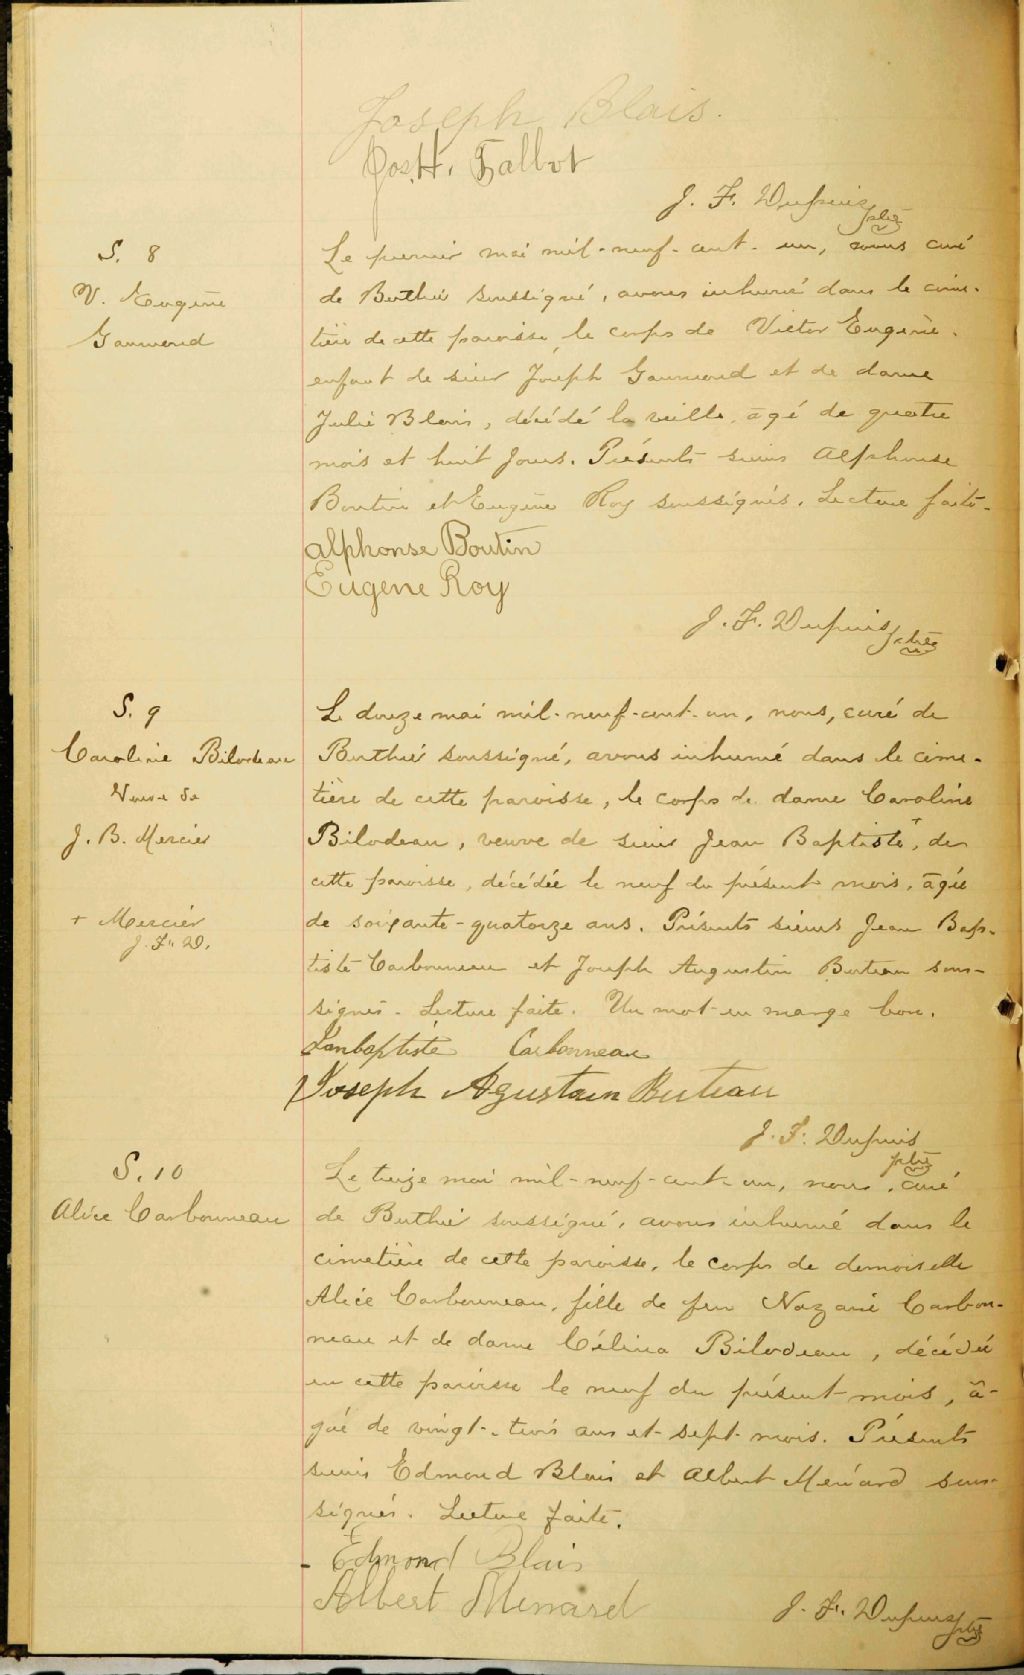 Joseph Blais.
Jos. H. Talbot
J. F. Dupuis ptre
S. 8
V. Eugène
Gaumond
Le premier mai mil-neuf-cent-un, nous curé
de Berthier soussigné, avons inhumé dans le cime-
tière de cette paroisse, le corps de Victor Eugène.
enfant de sieur Joseph Gaumond et de dame
Julie Blais, décédé la veille, âgé de quatre
mois et huit jours. Présents sieurs Alphonse
Boutin et Eugène Roy soussignés. Lecture faite.
Alphonse Boutin
Eugene Roy
J. F. Dupuis ptre
S. 9
Caroline Bilodeau
Veuve de
J. B. Mercier
+ Mercier
J. F. D.
Le douze mai mil-neuf-cent-un, nous, curé de
Berthier soussigné, avons inhumé dans le cime-
tière de cette paroisse, le corps de dame Caroline
Bilodeau, veuve de sieur Jean Baptiste +, de
cette paroisse, décédée le neuf du présent mois, âgée
de soixante-quatorze ans. Présents sieurs Jean Bap-
tiste Carbonneau et Joseph Augustin Buteau sous-
signés. Lecture faite. Un mot en marge bon.
Janbaptiste Carbonneau
Joseph Agustain Buteau
J. F. Dupuis
ptre
S. 10
Alice Carbonneau
Le treize mai mil-neuf-cent-un, nous, curé
de Berthier soussigné, avons inhumé dans le
cimetière de cette paroisse, le corps de demoiselle
Alice Carbonneau, fille de feu Nazaire Carbon-
neau et de dame Célina Bilodeau, décédée
en cette paroisse le neuf du présent mois, â-
gée de vingt-trois ans et sept mois. Présents
sieurs Edmond Blais et Albert Ménard sous-
signés. Lecture faite.
Edmond Blais
Albert Menard
J. F. Dupuis ptre